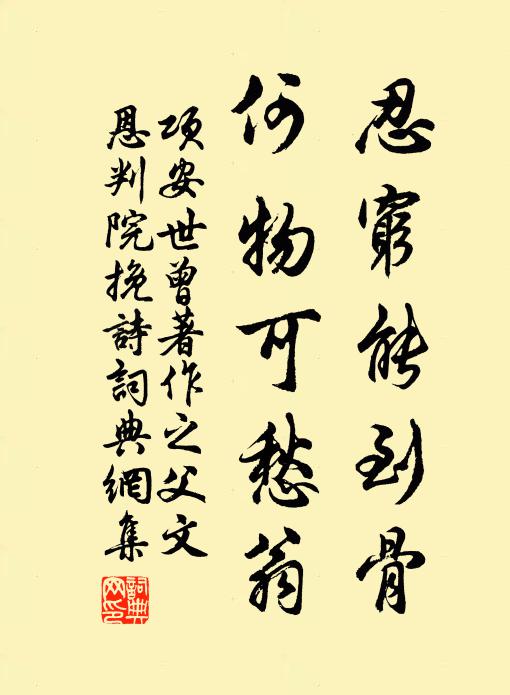 忍窮能到骨
何物可愁翁
項安世曾著作之父文
恩判院挽詩詞典網集